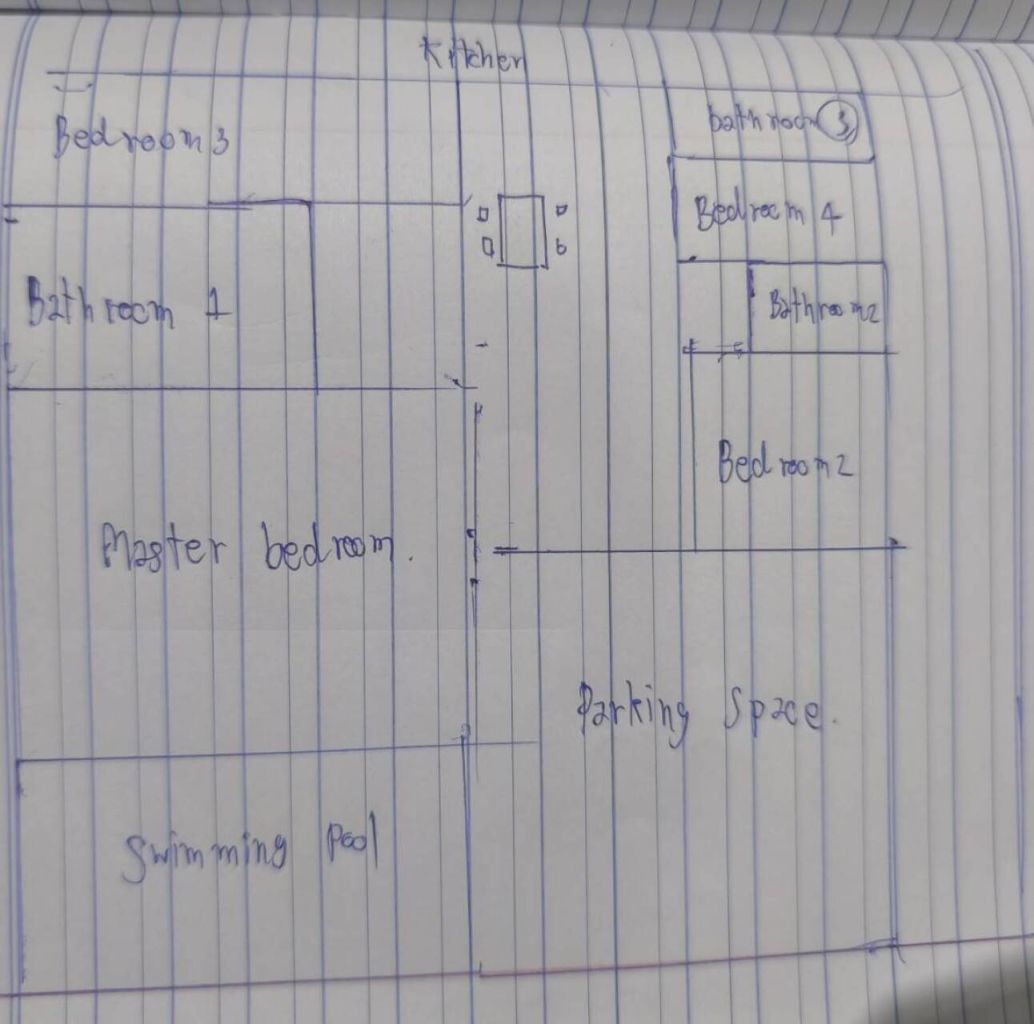 Kitchen
Bedroom 3
bathroom 3
Bedroom 4
Bathroom 1
Bathroom 2
Bedroom 2
Master bedroom.
Parking Space.
Swimming Pool